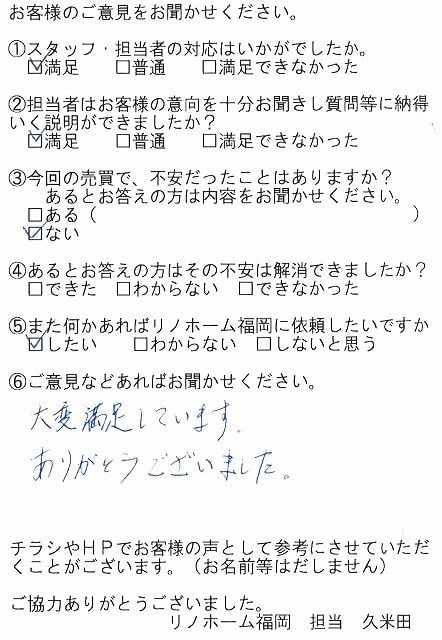 お客様のご意見をお聞かせください。
①スタッフ・担当者の対応はいかがでしたか。
☑満足　□普通　□満足できなかった
②担当者はお客様の意向を十分お聞きし質問等に納得
いく説明ができましたか？
☑満足　□普通　□満足できなかった
③今回の売買で、不安だったことはありますか？
あるとお答えの方は内容をお聞かせください。
□ある（　　　　　　　　　　　　　　　　）
☑ない
④あるとお答えの方はその不安は解消できましたか？
□できた　□わからない　□できなかった
⑤また何かあればリノホーム福岡に依頼したいですか
☑したい　□わからない　□しないと思う
⑥ご意見などあればお聞かせください。
大変満足しています。
ありがとうございました。
チラシやＨＰでお客様の声として参考にさせていただ
くことがございます。（お名前等はだしません）
ご協力ありがとうございました。
リノホーム福岡　担当　久米田